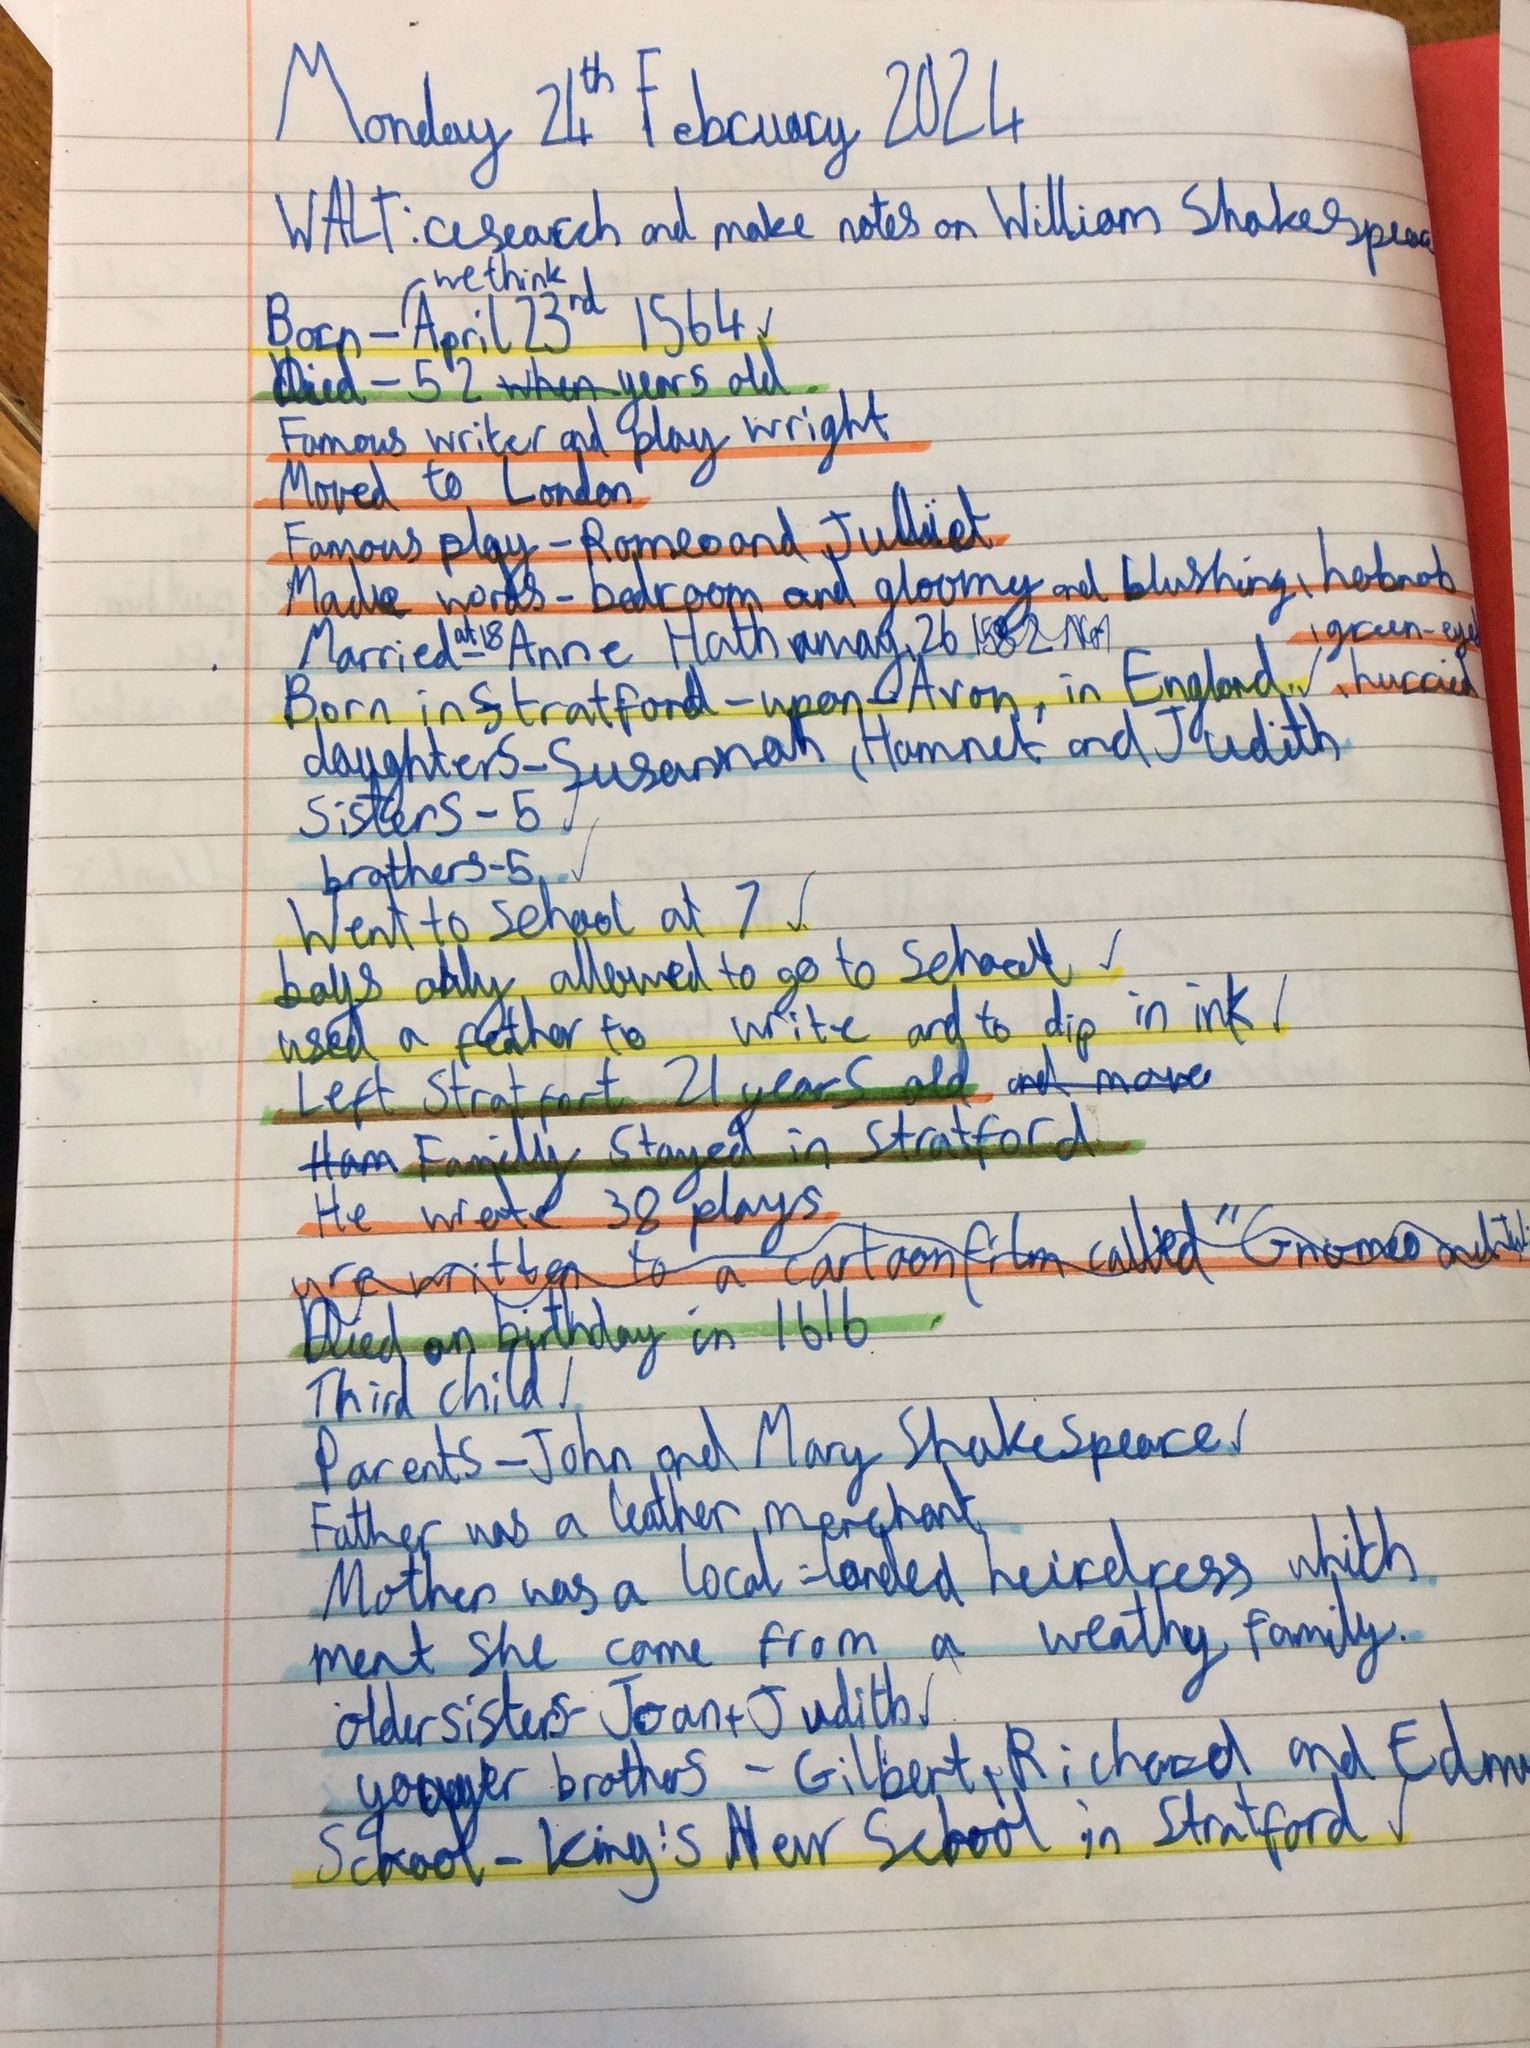 Monday 24th February 2024
WALT: research and make notes on William Shakespeare
we think
Born – April 23rd 1564 ✓
Died – 52 when years old.
Famous writer and play wright
Moved to London
Famous play – Romeo and Julliet
Made words – bedroom and gloomy and blushing, hobnob
, green-eyed
Married at 18 Anne Hathaway, 26 1582 Nov
, hurried
Born in Stratford – upon – Avon, in England. ✓
daughters – Susannah, Hamnet and Judith
Sisters – 5 ✓
brothers – 5. ✓
Went to school at 7 ✓
boys only allowed to go to school ✓
used a feather to write and to dip in ink ✓
Left Stratfort 21 years old and move
Ham Familly stayed in Stratford
He wrote 38 plays
written to a cartoon film called "Gnomeo and
Died on birthday in 1616
Third child ✓
Parents – John and Mary Shakespeare ✓
Father was a leather merchant
Mother was a local-landed heirdress which
ment she came from a weathy family.
older sisters – Joan + Judith ✓
younger brothers – Gilbert, Richard and Edmu
School – King's New School in Stratford ✓